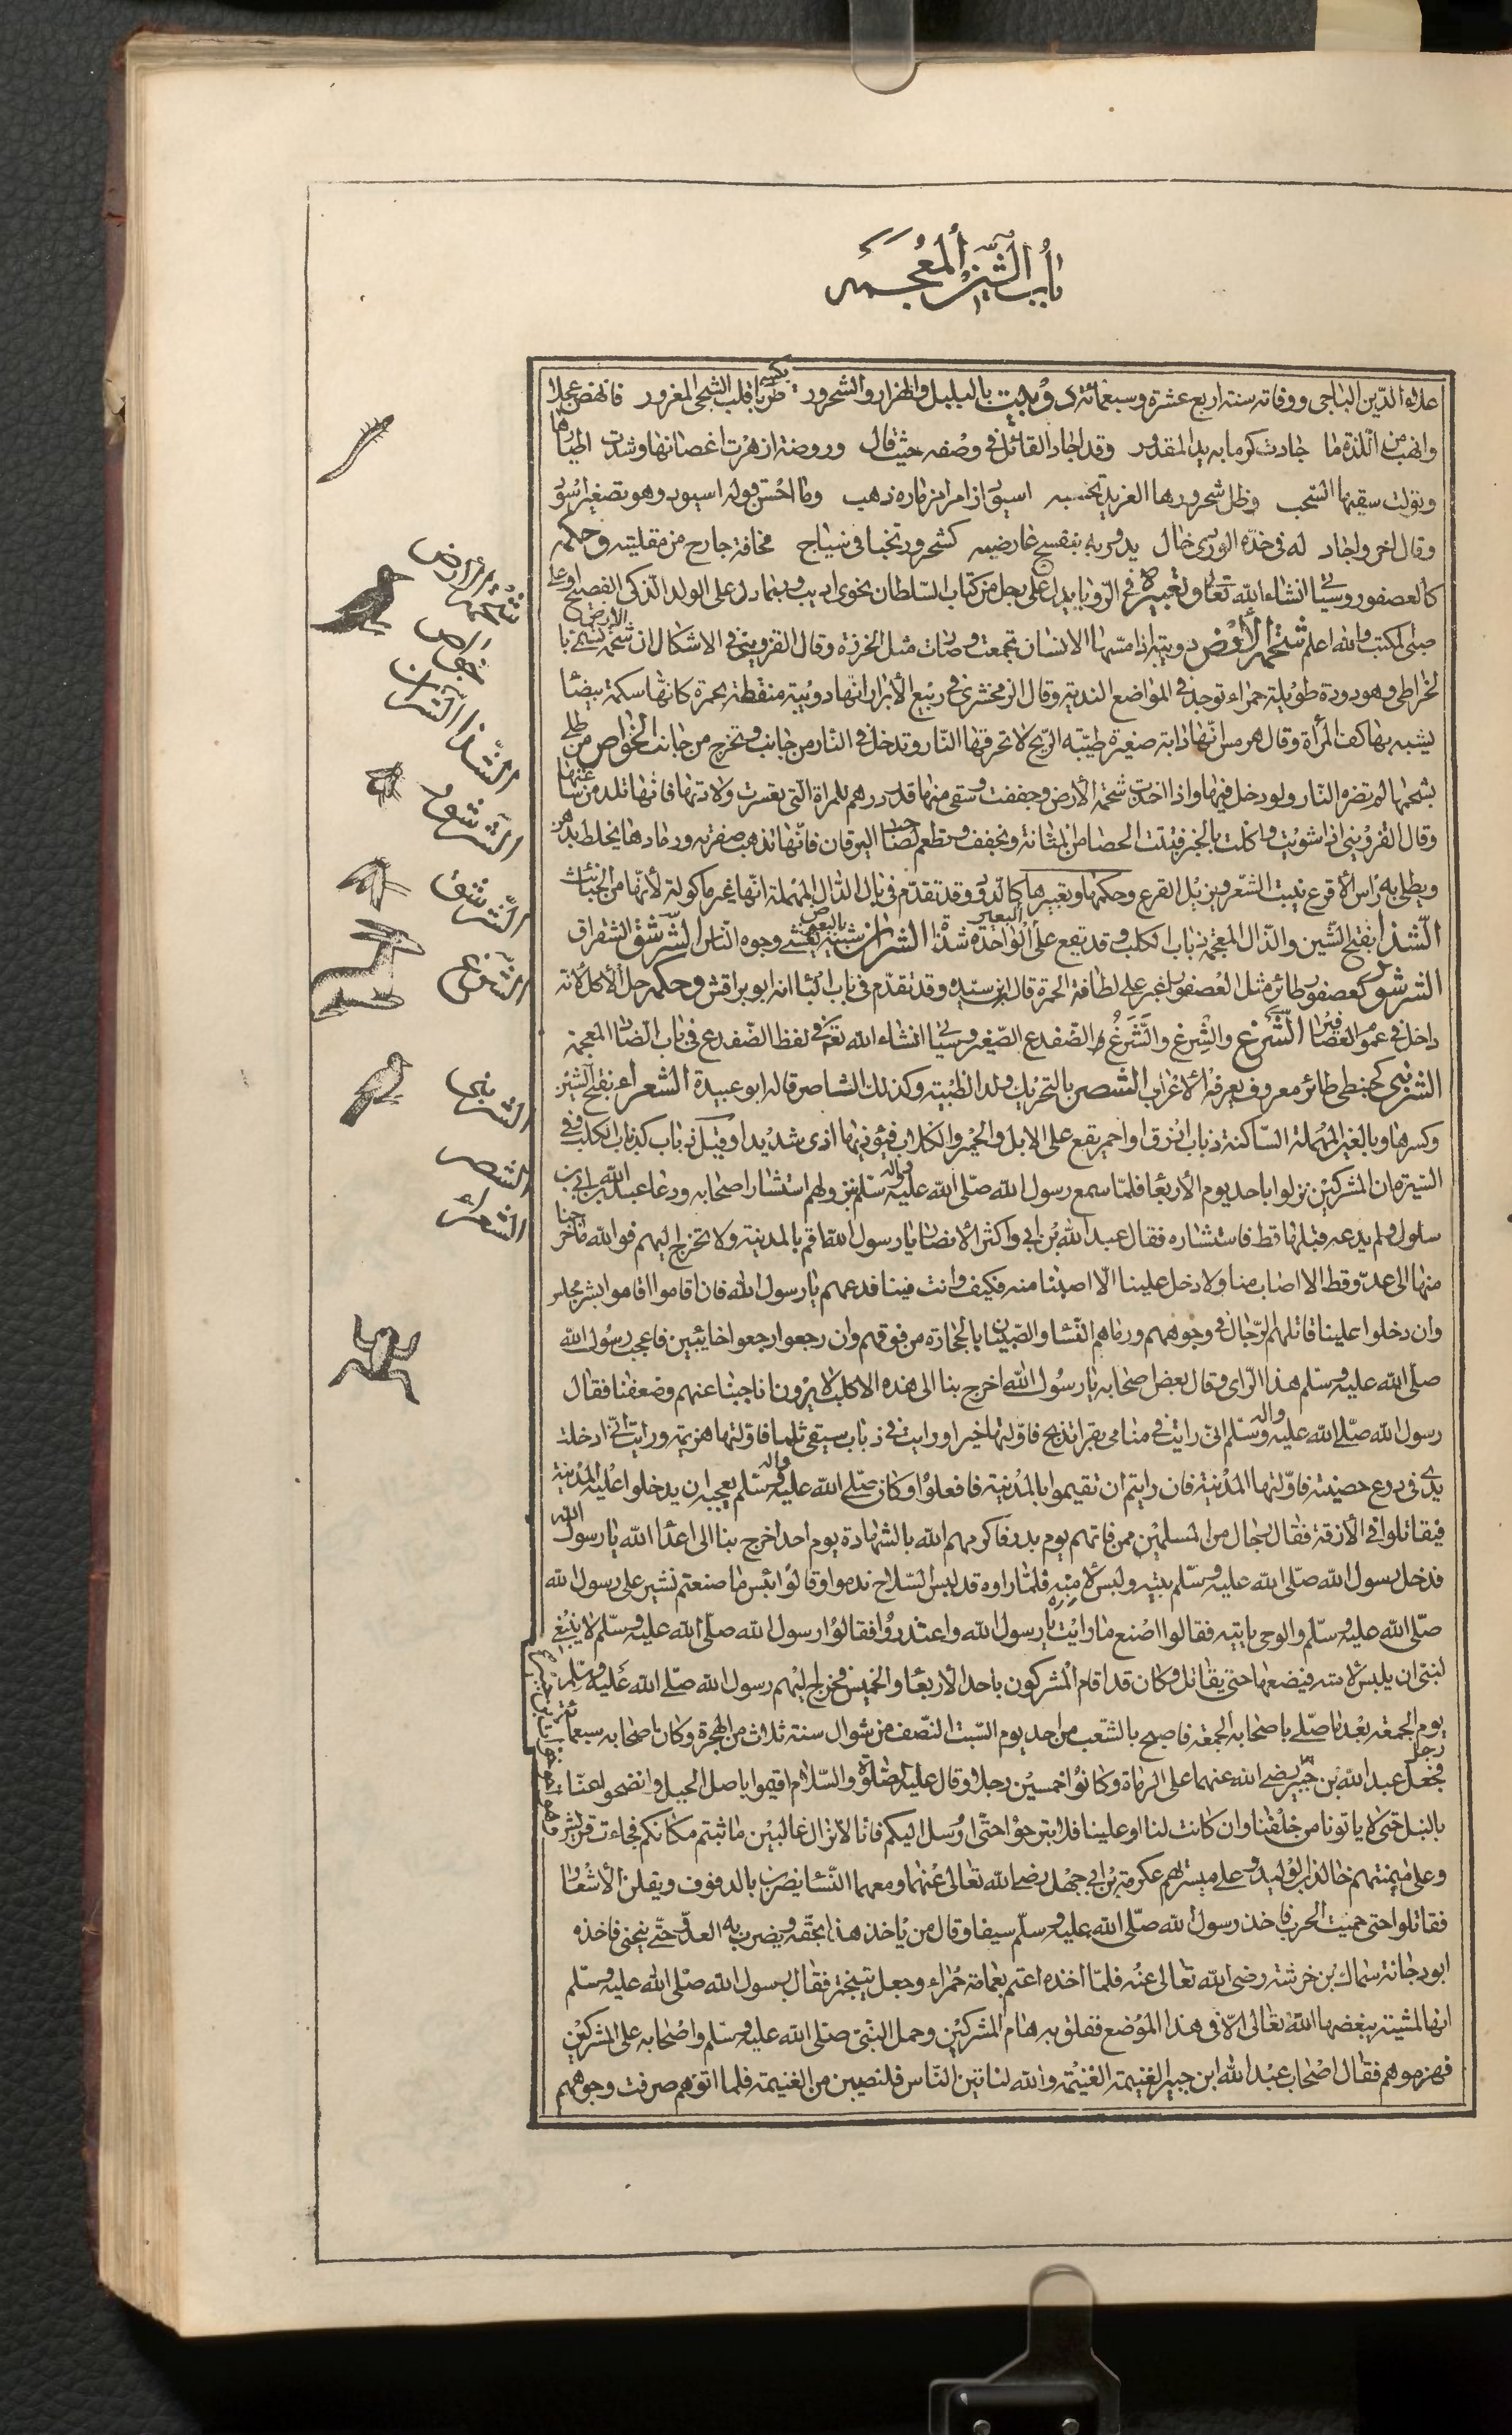 باب الشين المعجمه
علاء الدين الباجى ووفاته سنته اربع عشرة وسبعمائة د وُ بالبلبل والهزار والشحرور يكسى طربا قلب الشجى المغرور فانهض عجلا
وانهب من اللذة ما جادت كرما به يد المقدور وقد اجاد القائل فى وصفه حيث قال وروضة ازهرت اغصانها وشدت اطيارها
وتولت سقيها السحب وظل شحرورها الغريد تحسبه اسيود ازامرا مزماره ذهب وما احسن قوله اسيود وهو تصغير اسود
وقال اخر واجاد له فى خده الوردى خال يدور به بنفسج عارضيه كشحرور تخبا فى سياج مخافة جارح من مقلتيه وحكمه
كالعصفور وسياتى انشاء الله تعالى وتعبيره فى الرؤيا يدل على رجل من كتاب السلطان نحوى اديب وربما دل على الولد الذكى الفصيح او على
صبى المكتب والله اعلم شحمة الأرض دويبة اذا مسها الانسان تجمعت وصارت مثل الخرزة وقال القزوينى فى الاشكال ان شحمة الارض تسمى با
لخراطى وهو دودة طويلة حمراء توجد فى المواضع الندية وقال الزمخشرى فى ربيع الأبرار انها دويبة منقطة بحمرة كانها سمكة بيضا
يشبه بها كف المرأة وقال هرمس انها دابة صغيرة طيبة الريح لا تحرقها النار وتدخل فى النار من جانب وتخرج من جانب الخواص من طلى
بشحمها لم تضره النار ولو دخل فيها واذا اخذت شحمة الأرض وجففت وسقى منها قدر درهم للمراة التى تعسرت ولادتها فانها تلد من ساعتها
وقال القزوينى اذا شويت واكلت بالخبز فتتت الحصا من المثانة وتجفف وتطعم لصاحب اليرقان فانها تذهب صفرته ورمادها يخلط بدهن
ويطلى به راس الأقرع نيبت الشعر ويزيل القرع وحكمها وتعبيرها كالدود وقد تقدم فى باب الدال المهملة انها غير ماكولة لأنها من الخبائث
الشذا بفتح الشين والذال المعجمة ذباب الكلب وقد يقع على البعير الواحدة شذاة الشران شبيه بالبعوض يغشى وجوه الناس الشرشق الشقراق
الشرشور كعصفور طائر مثل العصفور اغبر على لطافة الحمرة قال ابن سيده وقد تقدم فى باب البا انه ابو براقش وحكمه حل الأكل لأنه
داخل فى عموم العصافير الشرغ والشِرغ والشَرَغُ الضفدع الصغير وسياتى انشاء الله تعا فى لفظ الضفدع فى باب الضاد المعجمة
الشرنبى كحبنطى طائر معروف يعرفه الأعراب الشصر بالتحريك ولد الظبية وكذلك الشاصر قاله ابو عبيدة الشعراء بفتح الشين
وكسرها وبالعين المهملة الساكنة ذباب ازرق او احمر يقع على الابل والحمير والكلاب فيؤذيها اذى شديدا وقيل ذباب كذباب الكلب ففى
السيرة ان المشركين نزلوا باحد يوم الأربعا فلما سمع رسول الله صلى الله عليه واله وسلم بنزولهم استشار اصحابه ودعا عبد الله بن ابى بن
سلول ولم يدعه قبلها قط فاستشاره فقال عبد الله بن ابى واكثر الأنصار يا رسول الله اقم بالمدينة ولا تخرج اليهم فوالله ما خرجنا
منها الى عدو قط الا اصاب منا ولا دخل علينا الا اصبنا منه فكيف وانت فينا فدعهم يا رسول الله فان اقاموا اقاموا بشر مجلس
وان دخلوا علينا قاتلهم الرجال فى وجوههم ورماهم النسا والصبيان بالحجارة من فوقهم وان رجعوا رجعوا خائبين فاعجب رسول الله
صلى الله عليه وسلم هذا الراى وقال بعض اصحابه يا رسول الله اخرج بنا الى هذه الاكلب لا يرون انا جبنا عنهم وضعفنا فقال
رسول الله صلى الله عليه واله وسلم انى رايت فى منامى بقرا تذبح فاولتها خيرا ورايت فى ذباب سيفى ثلما فاولتها هزيمة ورايت انى ادخلت
يدى فى درع حصينة فاولتها المدينة فان رايتم ان تقيموا بالمدينة فافعلوا وكان صلى الله عليه واله وسلم يعجبه ان يدخلوا عليه المدينة
فيقاتلوا فى الأزقة فقال رجال من المسلمين ممن فاتهم يوم بدر فاكرمهم الله بالشهادة يوم احد اخرج بنا الى اعدا الله يا رسول الله
فدخل رسول الله صلى الله عليه وسلم بيته ولبس لأمته فلما راوه قد لبس السلاح ندموا وقالوا بئس ما صنعتم نشير على رسول الله
صلى الله عليه وسلم والوحى ياتيه فقالوا اصنع ما رايت يا رسول الله واعتذروا فقالوا رسول الله صلى الله عليه وسلم لا ينبغى
لنبى ان يلبس لامته فيضعها حتى يقاتل وكان قد اقام المشركون باحد الأربعا والخميس فخرج اليهم رسول الله صلى الله عليه وسلم
يوم الجمعة بعد ما صلى باصحابه الجمعة فاصبح بالشعب من احد يوم السبت النصف من شوال سنة ثلاث من الهجرة وكان اصحابه سبعمائة رجل
فجعل عبد الله بن جبير رضى الله عنهما على الرماة وكانوا خمسين رجلا وقال عليه الصلوة والسلام اقيموا باصل الجبل وانضحوا عنا
بالنبل حتى لا ياتونا من خلفنا وان كانت لنا او علينا فلا تبرحوا حتى ارسل اليكم فانا لا نزال غالبين ما ثبتم مكانكم فجاءت قريش
وعلى ميمنتهم خالد بن الوليد وعلى ميسرتهم عكرمة بن ابى جهل رضى الله تعالى عنهما ومعهما النسا يضربن بالدفوف ويقلن الأشعار
فقاتلوا حتى حميت الحرب فاخذ رسول الله صلى الله عليه وسلم سيفا وقال من ياخذ هذا بحقه ويضرب به العدو حتى ينحنى فاخذه
ابو دجانة سماك بن خرشة رضى الله تعالى عنه فلما اخذه اعتم بعمامة حمراء وجعل يتبختر فقال رسول الله صلى الله عليه وسلم
انها لمشية يبغضها الله تعالى الا فى هذا الموضع ففلق به هام المشركين وحمل النبى صلى الله عليه وسلم واصحابه على المشركين
فهزموهم فقال اصحاب عبد الله ابن جبير الغنيمة الغنيمة والله لناتين الناس فلنصيبن من الغنيمة فلما اتوهم صرفت وجوههم
شحمة الأرض
الخواص
الشذا الشران
الشرشور
الشرشق
الشرغ
الشرنبى
الشصر
الشعراء